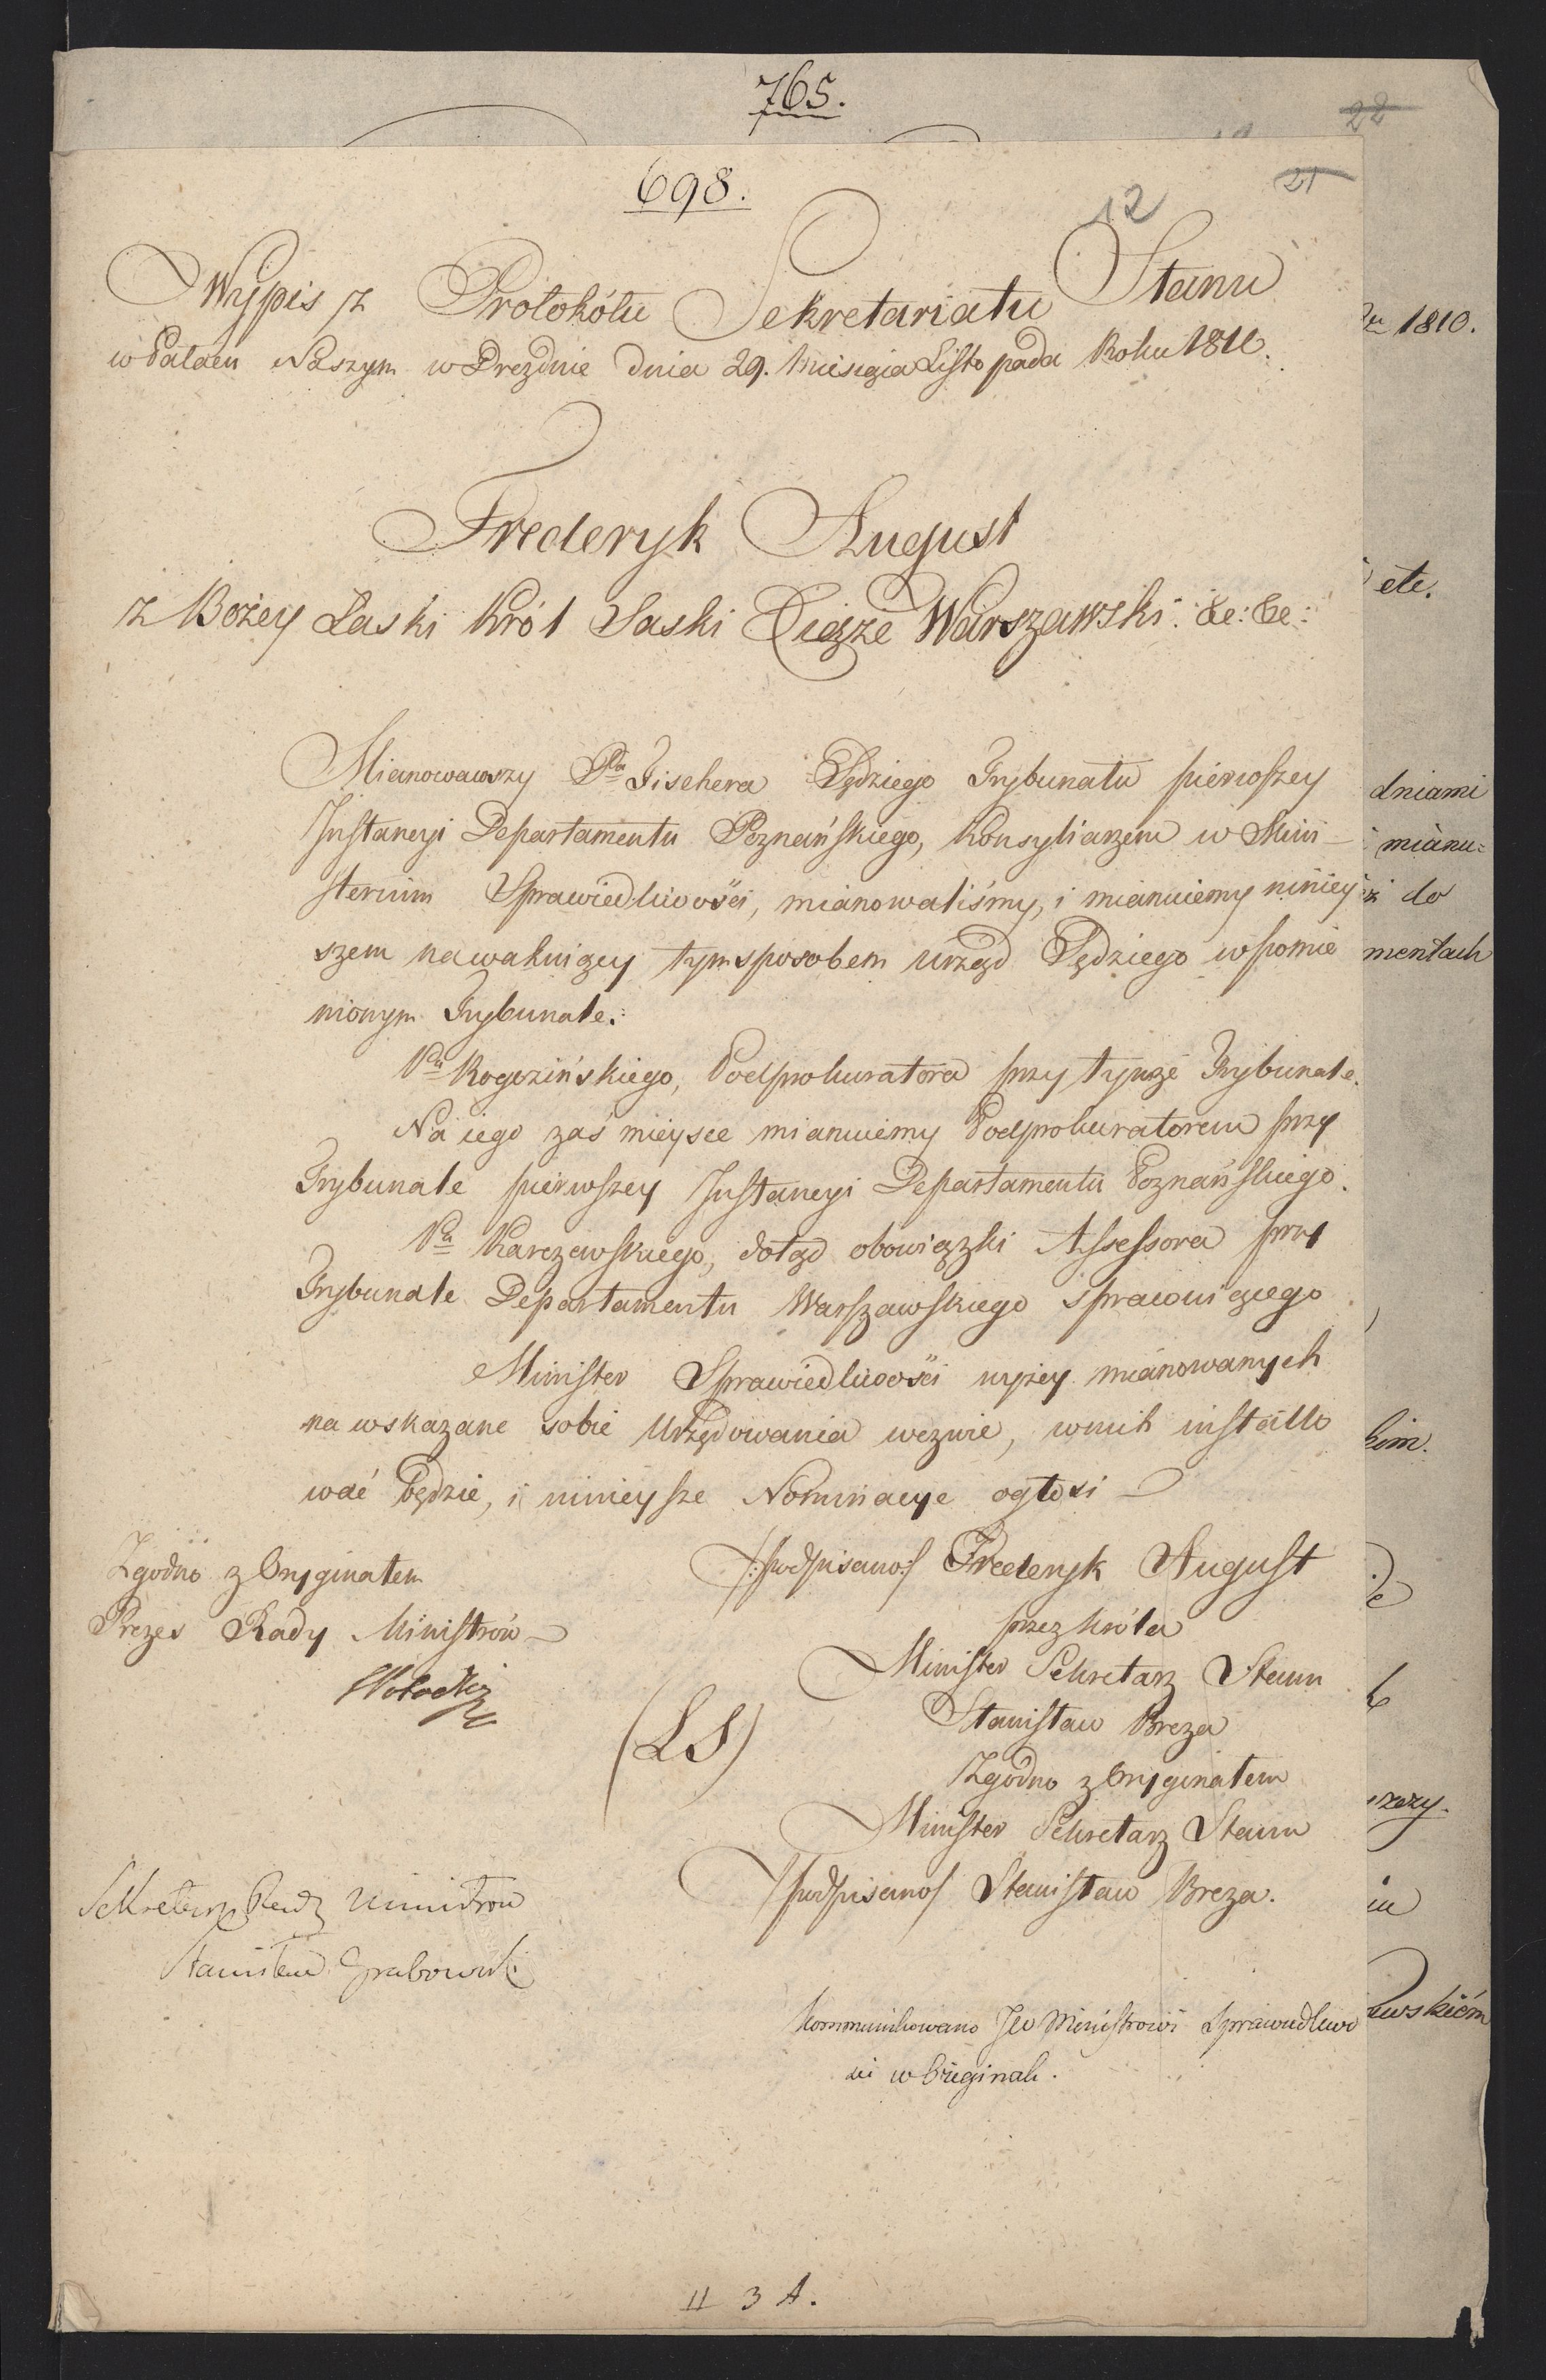 765.
22
698.
21
12
Wypis z Protokółu Sekretariatu Stanu
w Pałacu Naszym w Dreźnie dnia 29. Miesiąca Listopada Roku 1810.
Frederyk August
z Bożey Łaski Król Saski Xiąże Warszawski. &c: &c:
Mianowawszy Pa Fischera Sędziego Trybunału pierwszey
Instancyi Departamentu Poznańskiego, Konsyliarzem w Mini-
sterium Sprawiedliwości, mianowaliśmy, i mianuiemy niniey
szem na wakuiący tym sposobem Urząd Sędziego wspomie
nionym Trybunale.
Pa Rogozińskiego, Podprokuratora przy tymże Trybunale.
Na iego zaś mieysce mianuiemy Podprokuratorem przy
Trybunale pierwszey Instancyi Departamentu Poznańskiego.
Pa Karczewskiego, dotąd obowiązki Assessora przy
Trybunale Departamentu Warszawskiego sprawuiącego
Minister Sprawiedliwości wyżey mianowanych
na wskazane sobie Urzędowania wezwie, w nich installo
wać będzie, i ninieysze Nominacye ogłosi
/:podpisano:/ Frederyk August
przez Króla
Minister Sekretarz Stanu
Stanisław Breza
Zgodno z Oryginałem
Minister Sekretarz Stanu
/podpisano/ Stanisław Breza.
(LS)
Zgodno z Oryginałem
Prezes Rady Ministrów
Sekretarz Rady Ministrow
Stanisław Grabowski
Kommunikowano JW Ministrowi Sprawiedliwo
ści w Originale.
II 3 A.
1810.
etc.
dniami
mianu=
do
mentach
kim.